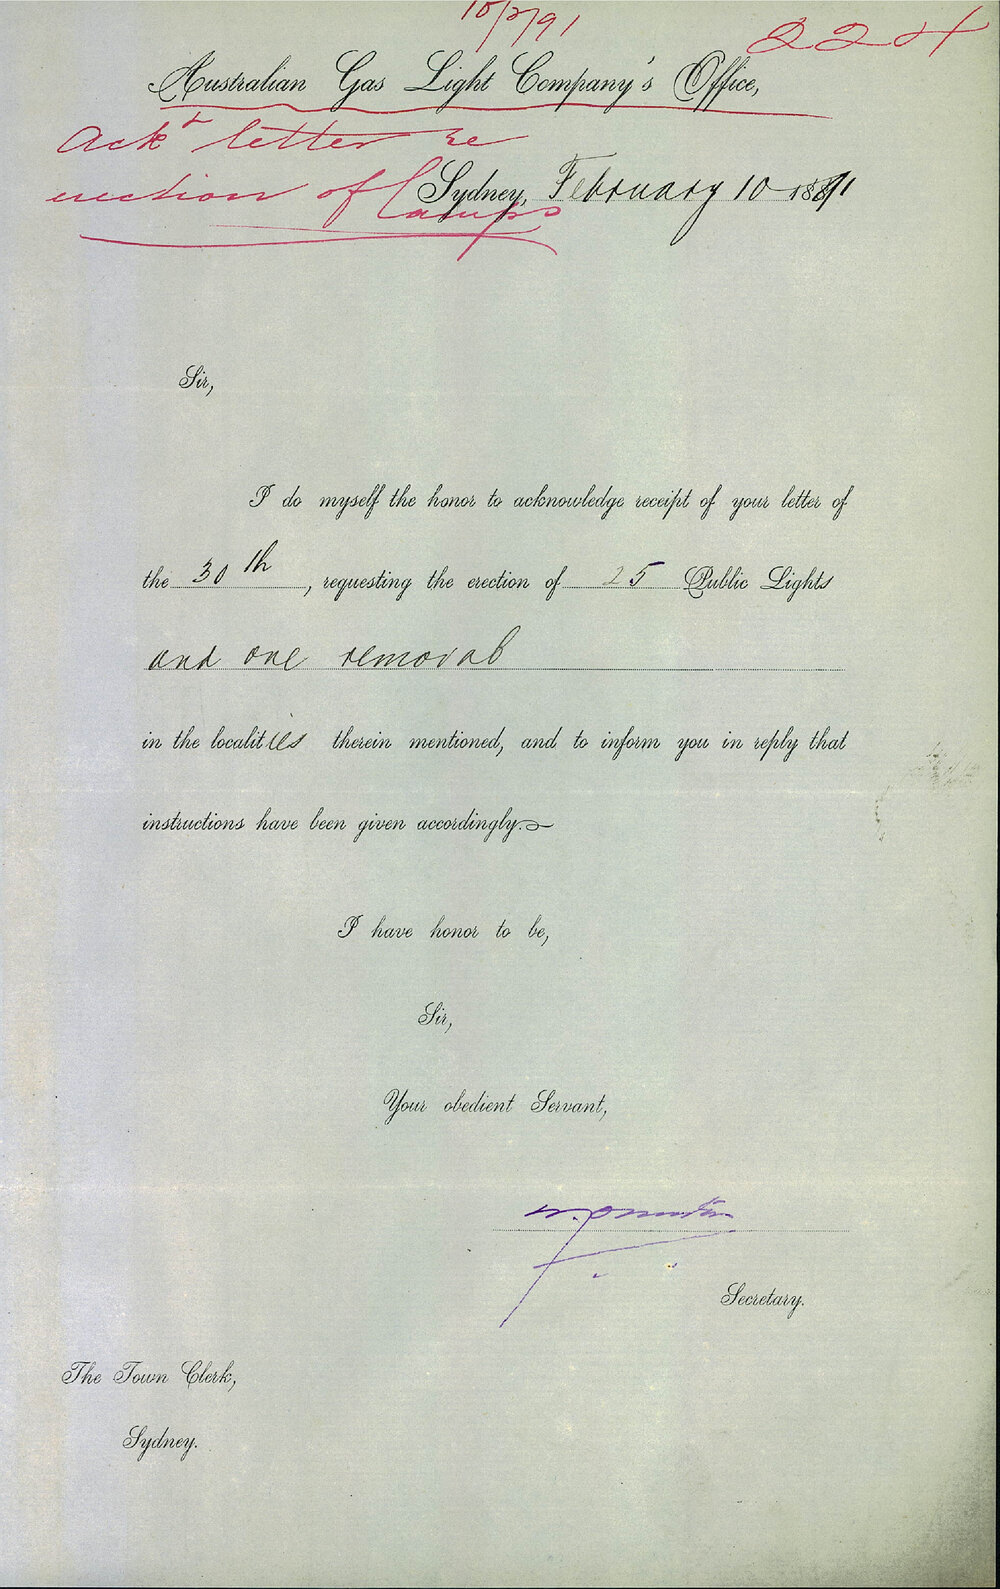 10/2/91
224
Australian Gas Light Company's Office,
Ackt letter re
erection of Lamps
Sydney, February 10 1891
Sir,
I do myself the honor to acknowledge receipt of your letter of
the 30th, requesting the erection of 25 Public Lights
and one removal
in the localities therein mentioned, and to inform you in reply that
instructions have been given accordingly.
I have honor to be,
Sir,
Your obedient Servant,
Secretary.
The Town Clerk,
Sydney.